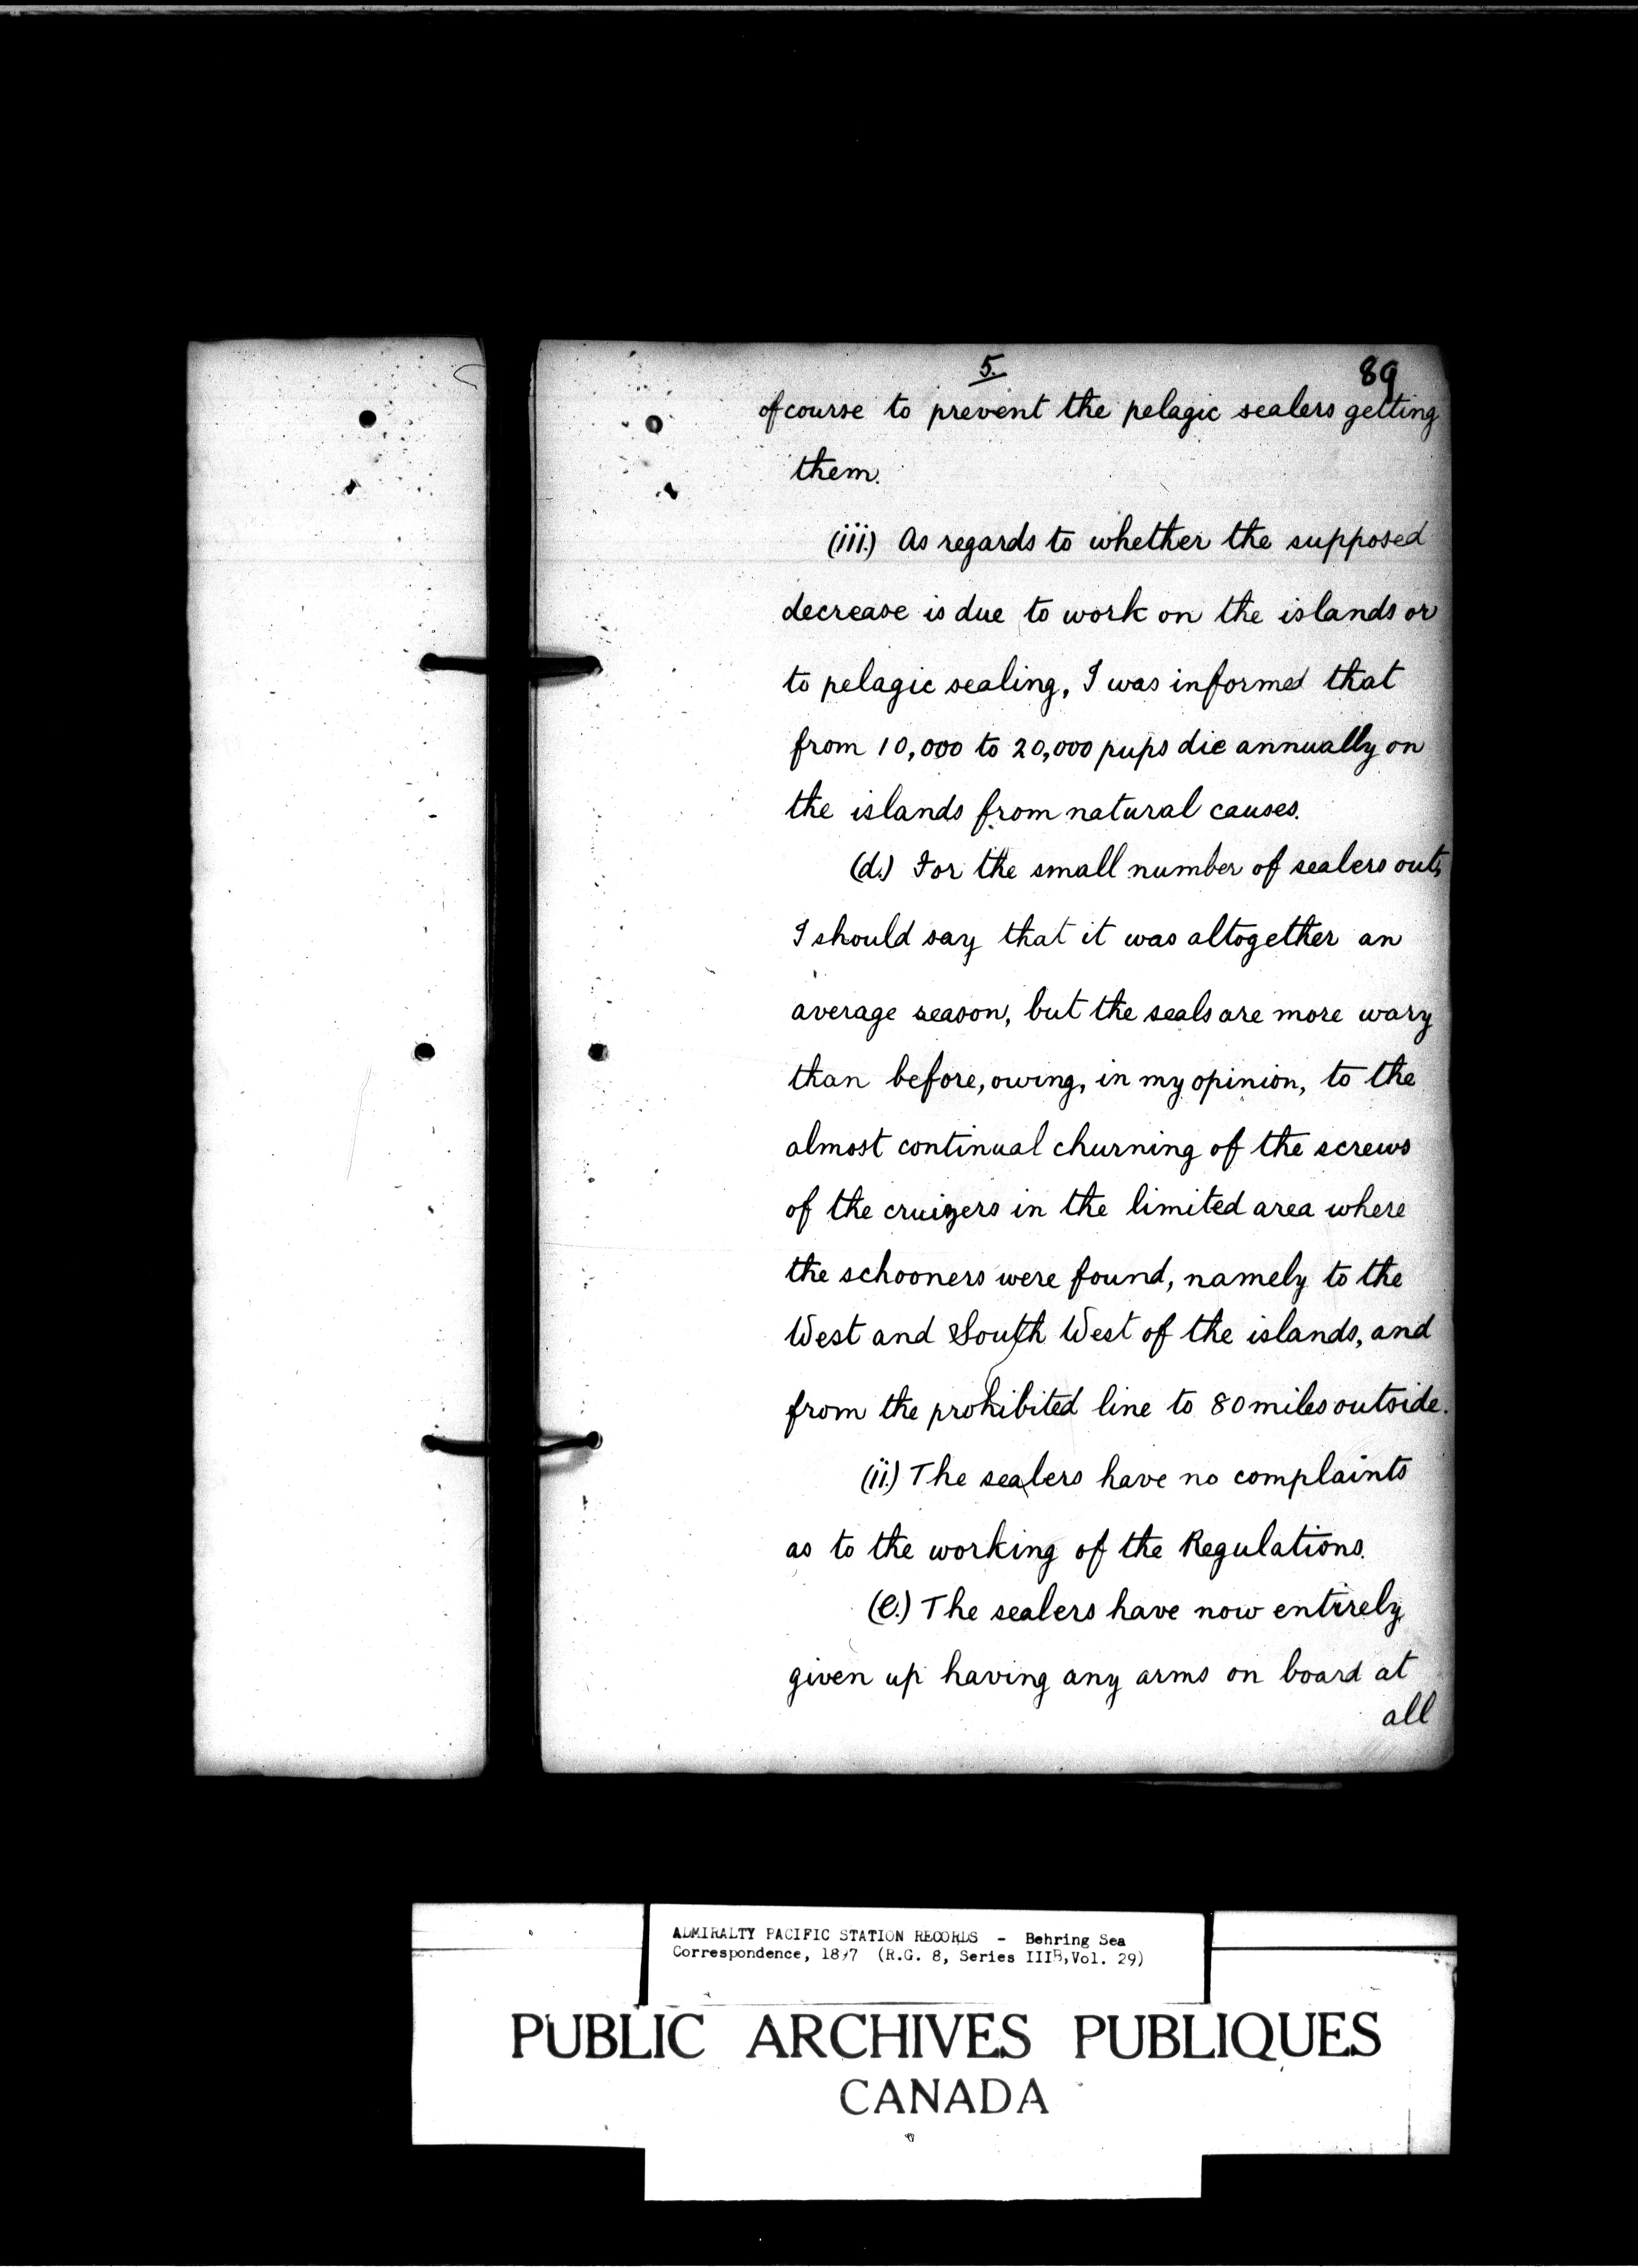 5.
89
of course to prevent the pelagic sealers getting
them.
(iii.) As regards to whether the supposed
decrease is due to work on the islands or
to pelagic sealing, I was informed that
from 10,000 to 20,000 pups die annually on
the islands from natural causes.
(d.) For the small number of sealers out,
I should say that it was altogether an
average season, but the seals are more wary
than before, owing, in my opinion, to the
almost continual churning of the screws
of the cruizers in the limited area where
the schooners were found, namely to the
West and South West of the islands, and
from the prohibited line to 80 miles outside.
(ii.) The sealers have no complaints
as to the working of the Regulations.
(e.) The sealers have now entirely
given up having any arms on board at
all
ADMIRALTY PACIFIC STATION RECORDS - Behring Sea
Correspondence, 1897 (R.G. 8, Series IIIB, Vol. 29)
PUBLIC ARCHIVES PUBLIQUES
CANADA